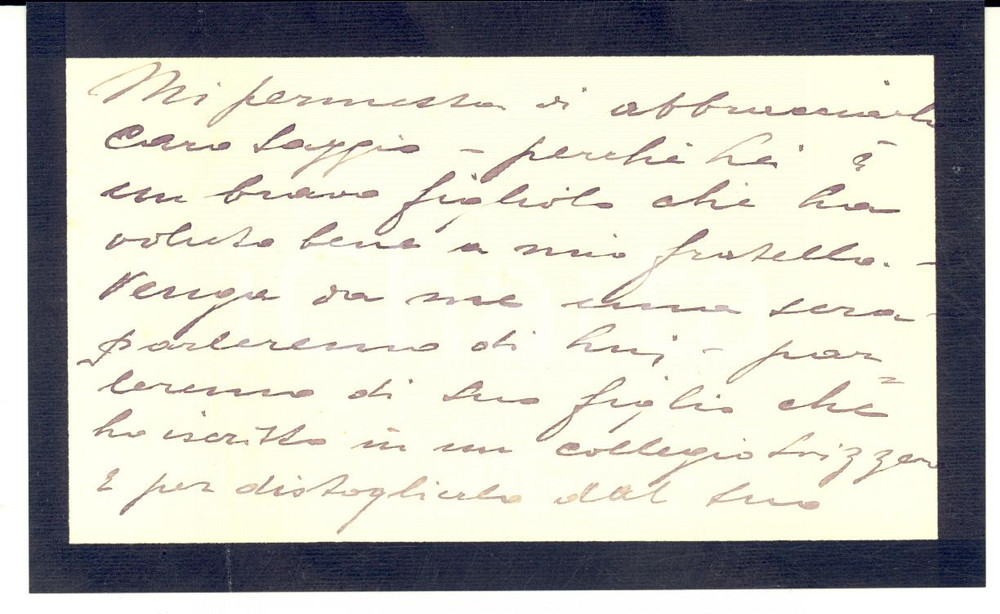 Mi permetta di abbracciarla
Caro Saggio – perché Lei è
un bravo figliolo che ha
voluto bene a mio fratello. –
Venga da me una sera –
parleremo di Lui, – par=
leremo di suo figlio che
ho iscritto in un collegio svizzero
e per distoglierlo dal suo